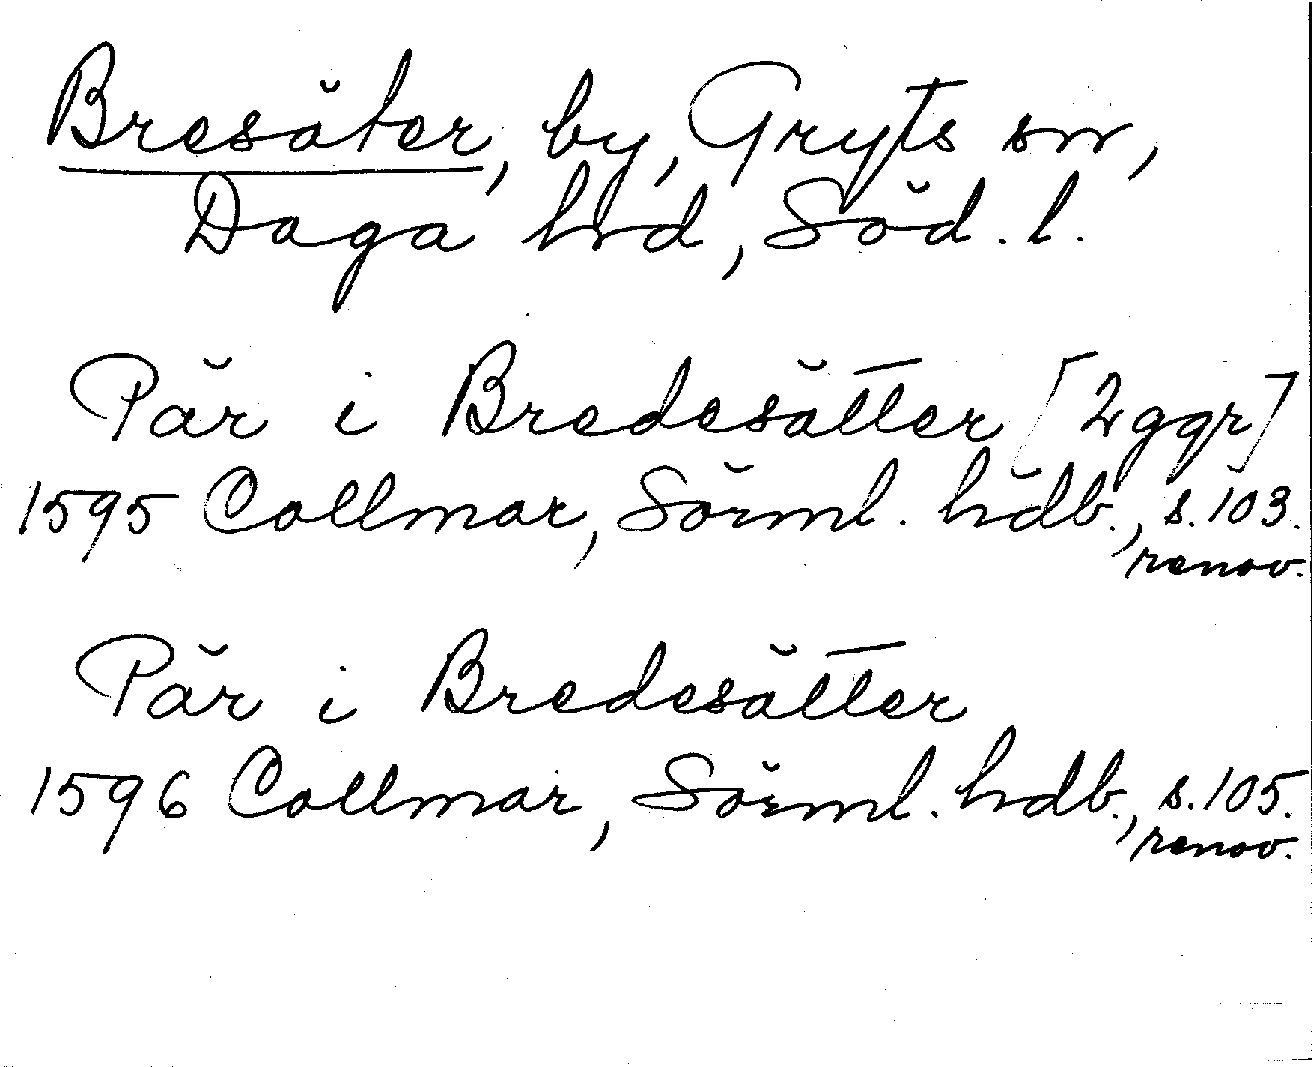 Bresäter, by, Gryts sn,
Daga hd, Söd. l.
Pär i Bredesätter [2 ggr]
1595 Collmar, Sörml. hdb., s. 103.
renov.
Pär i Bredesätter
1596 Collmar, Sörml. hdb., s. 105.
renov.